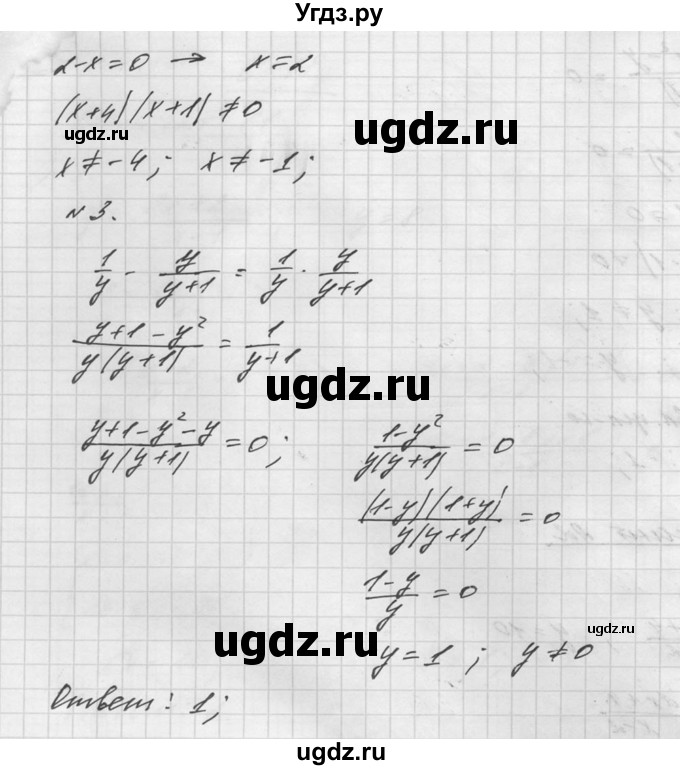 Угдз.ру
2-x=0 → x=2
(x+4)(x+1)≠0
ugdz.ru
ugdz.ru
x≠-4; x≠-1;
№3.
1/y - y/(y+1) = 1/y · y/(y+1)
(y+1-y²)/(y(y+1)) = 1/(y+1)
ugdz.ru
(y+1-y²-y)/(y(y+1)) = 0; (1-y²)/(y(y+1)) = 0
((1-y)(1+y))/(y(y+1)) = 0
(1-y)/y = 0
ugdz.ru
ugdz.ru
y=1; y≠0
Ответ: 1;
ugdz.ru